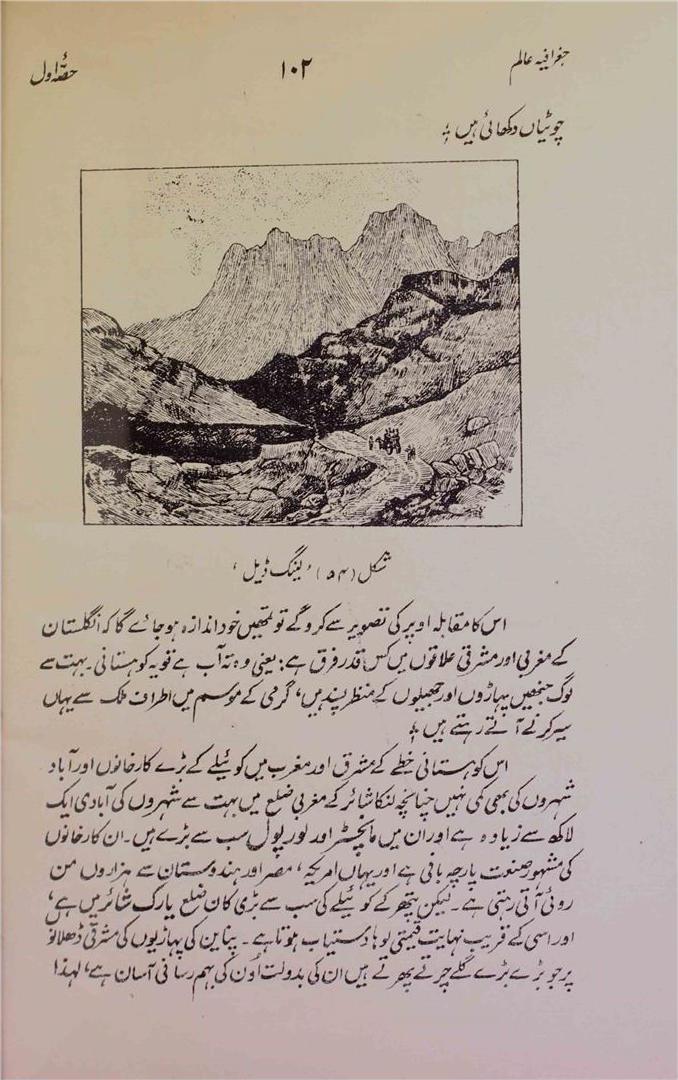 جغرافیہ عالم
۱۰۲
حصّۂ اول
چوٹیاں دکھائی ہیں ؛
شکل (۵۴) ’ لینگ ڈیل ‘
اس کا مقابلہ اوپر کی تصویر سے کرو گے تو تمھیں خود اندازہ ہو جائے گا کہ انگلستان
کے مغربی اور مشرقی علاقوں میں کس قدر فرق ہے: یعنی وہ تہ آب ہے تو یہ کوہستانی۔ بہت سے
لوگ جنھیں پہاڑوں اور جھیلوں کے منظر پسند ہیں، گرمی کے موسم میں اطراف ملک سے یہاں
سیر کرنے آتے رہتے ہیں ؛
اس کوہستانی خطے کے مشرق اور مغرب میں کوئیلے کے بڑے کارخانوں اور آباد
شہروں کی بھی کمی نہیں چنانچہ لنکا شائر کے مغربی ضلع میں بہت سے شہروں کی آبادی ایک
لاکھ سے زیادہ ہے اور ان میں مانچسٹر اور لورپول سب سے بڑے ہیں۔ ان کارخانوں
کی مشہور صنعت پارچہ بافی ہے اور یہاں امریکہ، مصر اور ہندوستان سے ہزاروں من
روئی آتی رہتی ہے۔ لیکن پتھر کے کوئیلے کی سب سے بڑی کان ضلع یارک شائر میں ہے،
اور اسی کے قریب نہایت قیمتی لوہا دستیاب ہوتا ہے۔ پناین کی پہاڑیوں کی مشرقی ڈھلانو
پر جو بڑے بڑے گلے چرتے پھرتے ہیں ان کی بدولت اُون کی بہم رسانی آسان ہے، لہٰذا